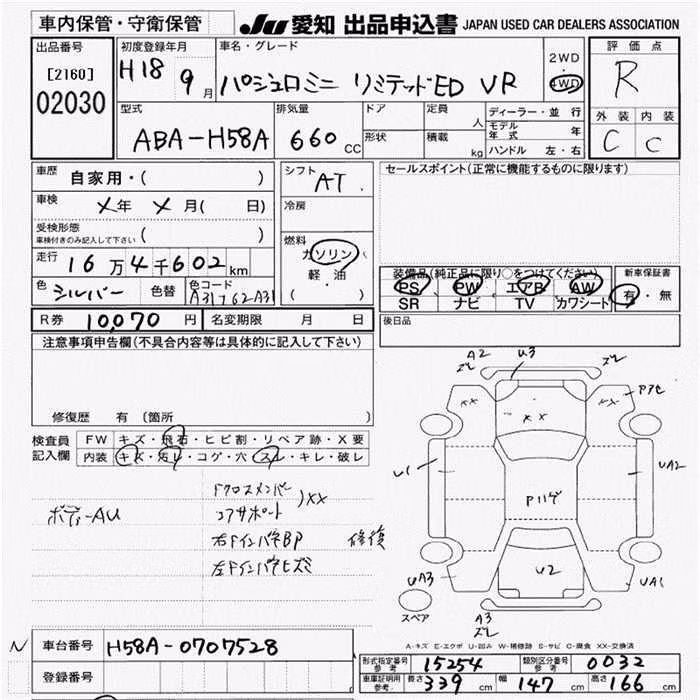 車内保管・守衛保管
JU 愛知 出品申込書 JAPAN USED CAR DEALERS ASSOCIATION
出品番号
[2160]
02030
初度登録年月
H18 9月
車名・グレード
パジェロミニ リミテッドED VR
2WD
4WD
評価点
R
型式
ABA-H58A
排気量
660 CC
ドア
定員
人
形状
積載
kg
ディーラー・並行
モデル年式 年
ハンドル 左・右
外装 内装
C C
車歴
自家用・( )
車検
メ年 メ月( 日)
受検形態
車検付きのみ記入して下さい ( )
走行
16万4千602km
色 シルバー 色替 色コード A31762A31
シフト
AT
冷房
燃料
ガソリン
軽油
( )
セールスポイント(正常に機能するものに限ります)
装備品(純正品に限り○をつけてください)
PS PW エアB AW
SR ナビ TV カワシート
新車保証書
有・無
R券 10,070円 名変期限 月 日
後日品
注意事項申告欄(不具合内容等は具体的に記入して下さい)
修復歴 有 (箇所
検査員記入欄
FW キズ・飛石・ヒビ割・リペア跡・X要
内装 キズ・汚レ・コゲ・穴・スレ・キレ・破レ
ボディ-AU
Fクロスメンバー
コアサポート
)XX
右FインパネBP 修復
左Fインパヒズミ
A2
ズレ
U3
ズレ
XX
XX
XX
Pアセ
U1
UA2
P11ゲ
U2
UA3
UA1
スペア
A3
ズレ
A-キズ E-エクボ U-凹み W-補修跡 S-サビ C-腐食 XX-交換済
N
車台番号 H58A-0707528
登録番号
形式指定番号 参考 15254 類別区分番号 参考 0032
車庫証明用 参考 長さ 339 cm 幅 147 cm 高さ 166 cm